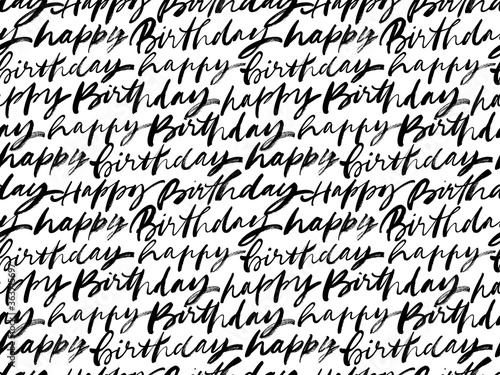 happy Birthday happy
happy Birthday happy Birthday
birthday happy birthday happy
happy Birthday happy Birthday
day happy Birthday happy Birthday
happy birthday happy birthday
day Happy Birthday Happy Birthday
happy Birthday happy Birthday
birthday happy birthday happy
happy Birthday happy Birthday
day happy Birthday happy Birthday
happy birthday happy birthday